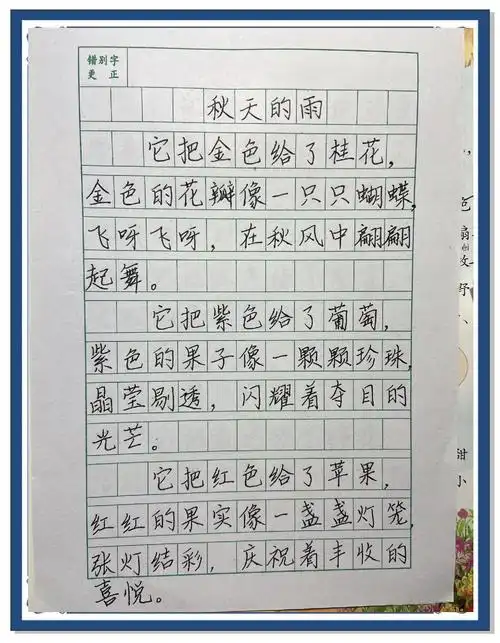 错别字
更 正
秋天的雨
它把金色给了桂花，
金色的花瓣像一只只蝴蝶，
飞呀飞呀，在秋风中翩翩
起舞。
它把紫色给了葡萄，
紫色的果子像一颗颗珍珠，
晶莹剔透，闪耀着夺目的
光芒。
它把红色给了苹果，
红红的果实像一盏盏灯笼，
张灯结彩，庆祝着丰收的
喜悦。
甜
小